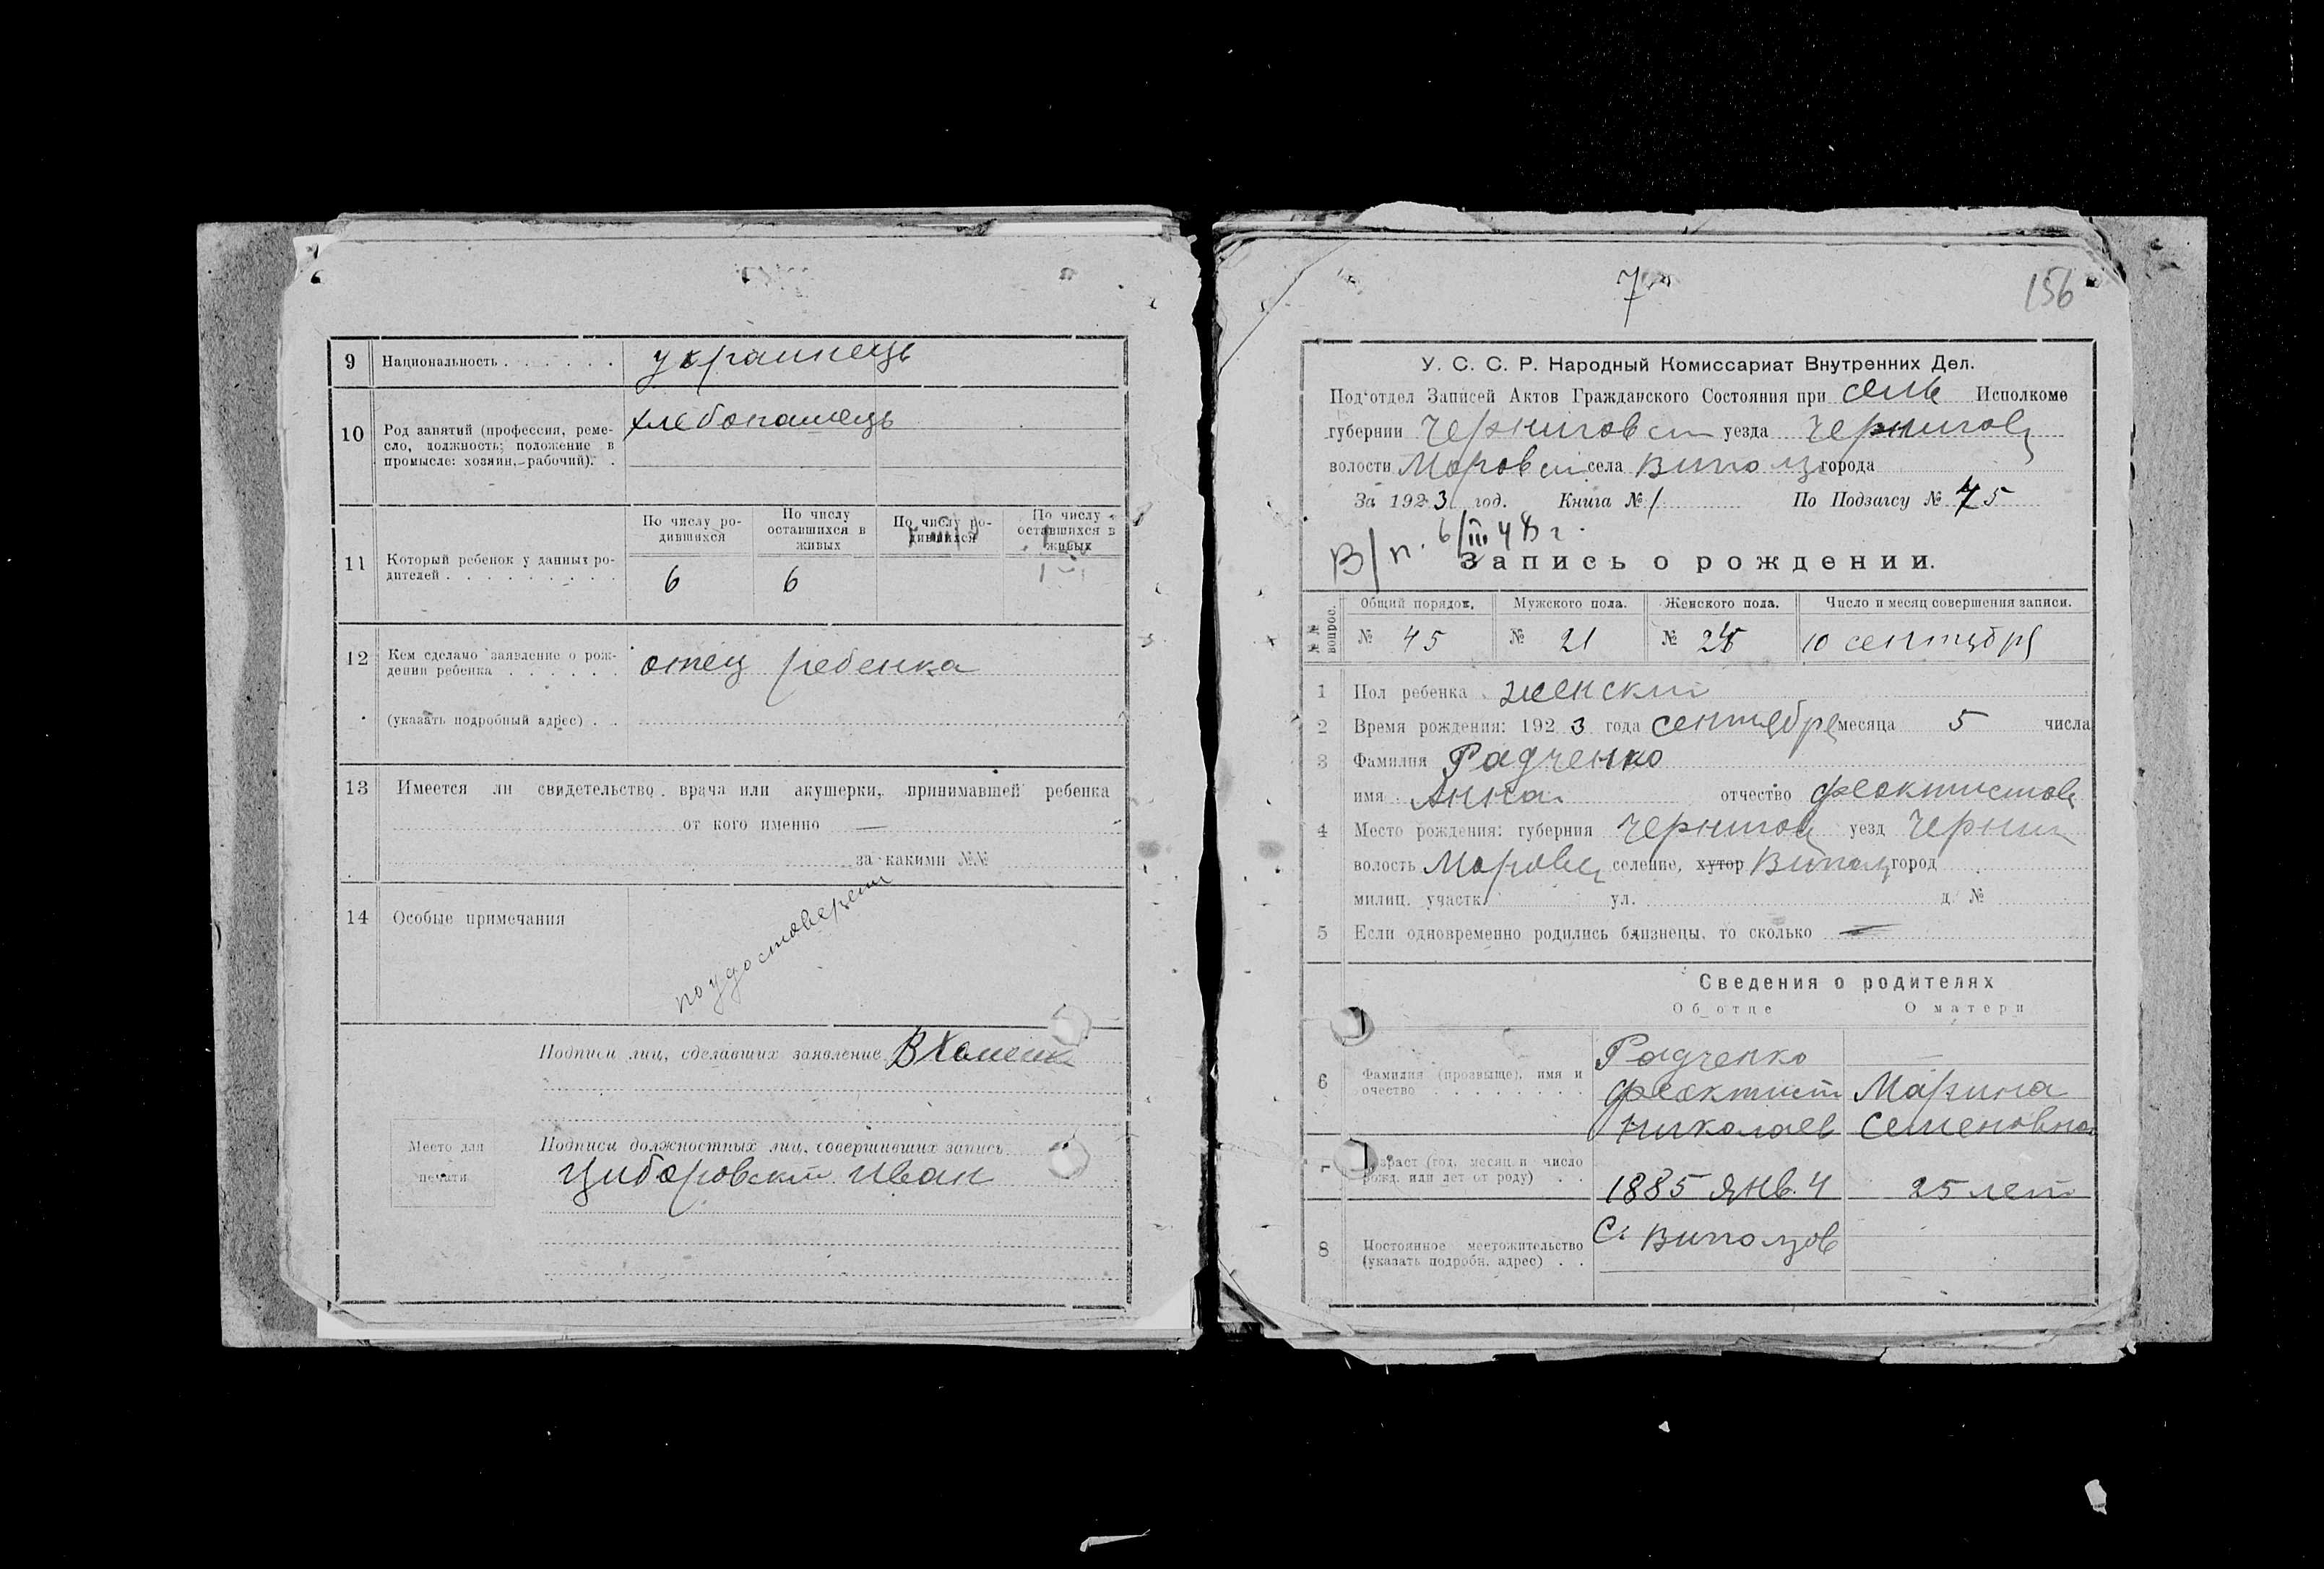 9 Национальность . . . . . . украинець
10 Род занятий (профессия, реме-
сло, должность; положение в
промысле: хозяин, рабочий). .
хлебопашець
11 Который ребенок у данных ро-
дителей . . . . . . . . .
По числу ро-
дившихся
По числу
оставшихся в
живых
По числу ро-
дившихся
По числу
оставшихся в
живых
6 6
12 Кем сделано заявление о рож-
дении ребенка . . . . . . отец ребенка
(указать подробный адрес) . .
13 Имеется ли свидетельство врача или акушерки, принимавшей ребенка
от кого именно —
за какими №№
14 Особые примечания
Подписи лиц, сделавших заявление
Место для
печати
Подписи должностных лиц, совершивших запись
Циборовский Иван
7
156
У. С. С. Р. Народный Комиссариат Внутренних Дел.
Подотдел Записей Актов Гражданского Состояния при сель Исполкоме
губернии Черниговск уезда Чернигов
волости Моровск села Виползг города
За 1923 год. Книга № 1 По Подзагсу № 45
В/п. 6/III 48 г.
Запись о рождении.
№№ вопрос.
Общий порядок. Мужского пола. Женского пола. Число и месяц совершения записи.
№ 45 № 21 № 24 10 сентября
1 Пол ребенка женский
2 Время рождения: 1923 года сентября месяца 5 числа
3 Фамилия Радченко
имя Анна отчество Феоктистов
4 Место рождения: губерния Чернигов уезд Черниг
волость Моровск селение, хутор Виполз город
милиц. участк. ул. д. №
5 Если одновременно родились близнецы, то сколько —
Сведения о родителях
Об отце О матери
6 Фамилия (прозвыще), имя и
очество . . . . . . . .
Радченко —
Феоктист Марина
Николаев Семеновна
Возраст (год, месяц и число
рожд. или лет от роду) . .
1885 Янв. 4 25 лет
8 Постоянное местожительство
(указать подробн. адрес) . .
С. Виползов